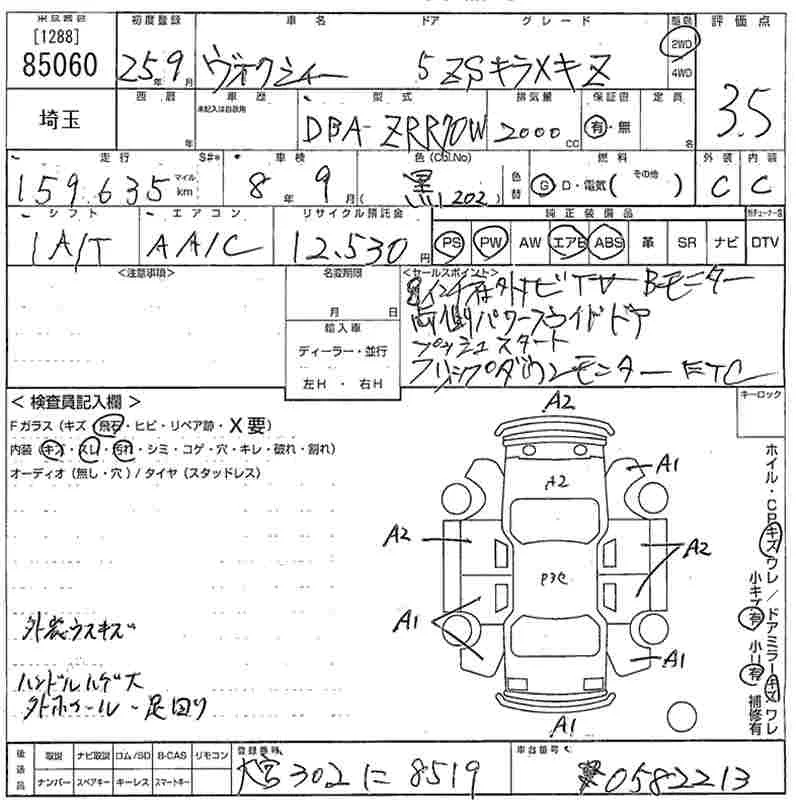 東京西名
[1288]
85060
埼玉
初度登録 車名 ドア グレード 駆動 評価点
25 9 ヴォクシィー 5 ZSキラメキZ 2WD
年 月 4WD
3.5
西暦 車歴 型式 排気量 保証書 定員
未記入は自家用
DBA-ZRR70W 2000 有・無
年 CC 名
走行 S#* 車検 色(Col.No) 燃料 外装 内装
159.635 マイル km 8年 9月 黒 (202) 色替 G・D・電気( その他 ) C C
シフト エアコン リサイクル預託金 純正装備品
IA/T AA/C 12.530円 PS PW AW エアB ABS 革 SR ナビ DTV
<注意事項> 名変期限
月 日
輸入車
ディーラー・並行
左H ・ 右H
<セールスポイント>
社外ナビTV Bモニター
両側パワースライドドア
プッシュスタート
フリップダウンモニター ETC
キーロック
< 検査員記入欄 >
Fガラス(キズ・飛石・ヒビ・リペア跡・X要)
内装(キズ・スレ・汚れ・シミ・コゲ・穴・キレ・破れ・割れ)
オーディオ(無し・穴)/タイヤ(スタッドレス)
A2
A2
A1
A2
A2
P3C
A1
A1
A1
ホイル・CPキズワレ/ドアミラーキズワレ
小キズ有 小リ有 補修有
外装ウスキズ
ハンドルハゲ大
外ホイール・足回り
後送品 取説 ナビ取説 ロム/SD B-CAS リモコン
ナンバー スペアキー キーレス スマートキー
登録番号 大宮302に8519
車台番号 0582213